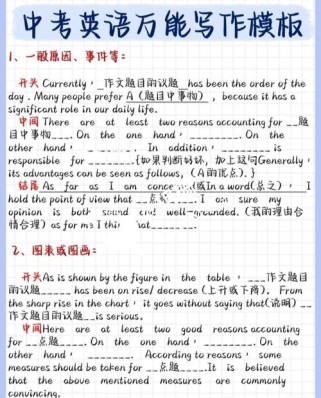 中考英语万能写作模板
1、一般原因、事件等:
开头 Currently,_作文题目的议题_has been the order of the
day. Many people prefer A (题目中事物), because it has a
significant role in our daily life.
中间 There are at least two reasons accounting for __题
目中事物____. On the one hand, ________. On the
other hand, ________. In addition, ________ is
responsible for ________.{如果判断好坏,加上这句Generally,
its advantages can be seen as follows, (A的优点).}
结尾 As far as I am (或In a word(总之), I
hold the point of view that __点____. I am sure my
opinion is both sound and well-grounded. (我的理由合
情合理) as for me I ________.
2、图表或图画:
开头As is shown by the figure in the table, ____作文题目
的议题_____ has been on rise/ decrease (上升或下降). From
the sharp rise in the chart, it goes without saying that(说明)__
作文题目的议题__is serious.
中间Here are at least two good reasons accounting
for __点题____. On the one hand, ________. On the
other hand, ________. According to reasons, some
measures should be taken for __点题____.It is believed
that the above mentioned measures are commonly
convincing.